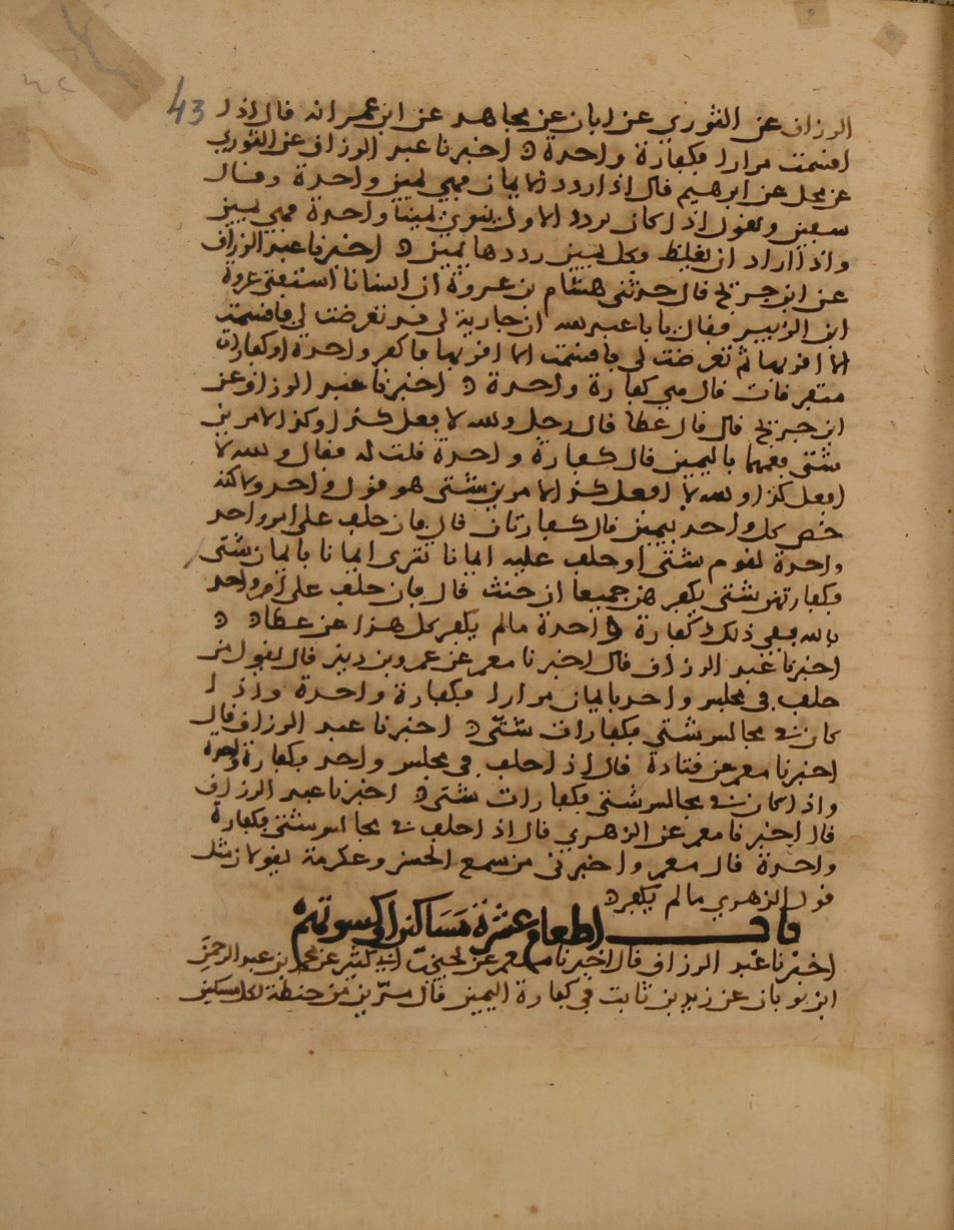 43
الرزاق عن الثوري عن ابان عن مجاهد عن ابن عمر انه قال اذا
اقسمت مرارا فكفارة واحدة ه اخبرنا عبد الرزاق عن الثوري
عن محل عن ابرهيم قال اذا ردد الايمان فهي يمين واحدة وقال
سفين ونقول اذا كان يردد الايمان ينوي يمينا واحدة فهي يمين
واذا اراد ان يغلظ فكل يمين رددها يمين ه اخبرنا عبد الرزاق
عن ابن جريج قال حدثني هشام بن عروة ان انسانا استفتى عروة
ابن الزبير فقال يا با عبد الله ان جارية لي قد تعرضت لي فاقسمت
الا اقربها ثم تعرضت لي فاقسمت الا اقربها فاكفر واحدة او كفارات
متفرقات قال هي كفارة واحدة ه اخبرنا عبد الرزاق عن
ابن جريج قال قال عطا قال رجل والله لا افعل كذا او كذا لامرين
شتى فعمهما باليمين قال كفارة واحدة قلت له فقال والله لا
افعل كذا والله لا افعل كذا لامرين شتى هو قول واحد ولاكنه
خص كل واحد بيمين قال كفارتان قال فان حلف على امر واحد
واحدة لقوم شتى او حلف عليه ايمانا تترى ايمانا بايمان شتى
فكفارتهن شتى يكفرهن جميعا ان حنث قال فان حلف على امر واحد
بالله ففي ذلك كفارة واحدة مالم يكفر كل هذا عن عطا ه ه
اخبرنا عبد الرزاق قال اخبرنا معمر عن عمرو بن دينر قال يقول من
حلف في مجلس واحد بايمان مرارا فكفارة واحدة واذا
كان في مجالس شتى فكفارات شتى ه اخبرنا عبد الرزاق قال
اخبرنا معمر عن قتادة قال اذا حلف في مجلس واحد فكفارة واحدة
واذا كان في مجالس شتى فكفارات شتى ه اخبرنا عبد الرزاق
قال اخبرنا معمر عن الزهري قال اذا حلف في مجالس شتى فكفارة
واحدة قال معمر واخبرني من سمع الحسن وعكرمة يقولان مثل
قول الزهري مالم يكفر ه
باب اطعام عشرة مساكين او كسوتهم
اخبرنا عبد الرزاق قال اخبرنا معمر عن يحيى بن ابي كثير عن محمد بن عبد الرحمن
ابن ثوبان عن زيد بن ثابت في كفارة اليمين قال مدين من حنطة لكل مسكين